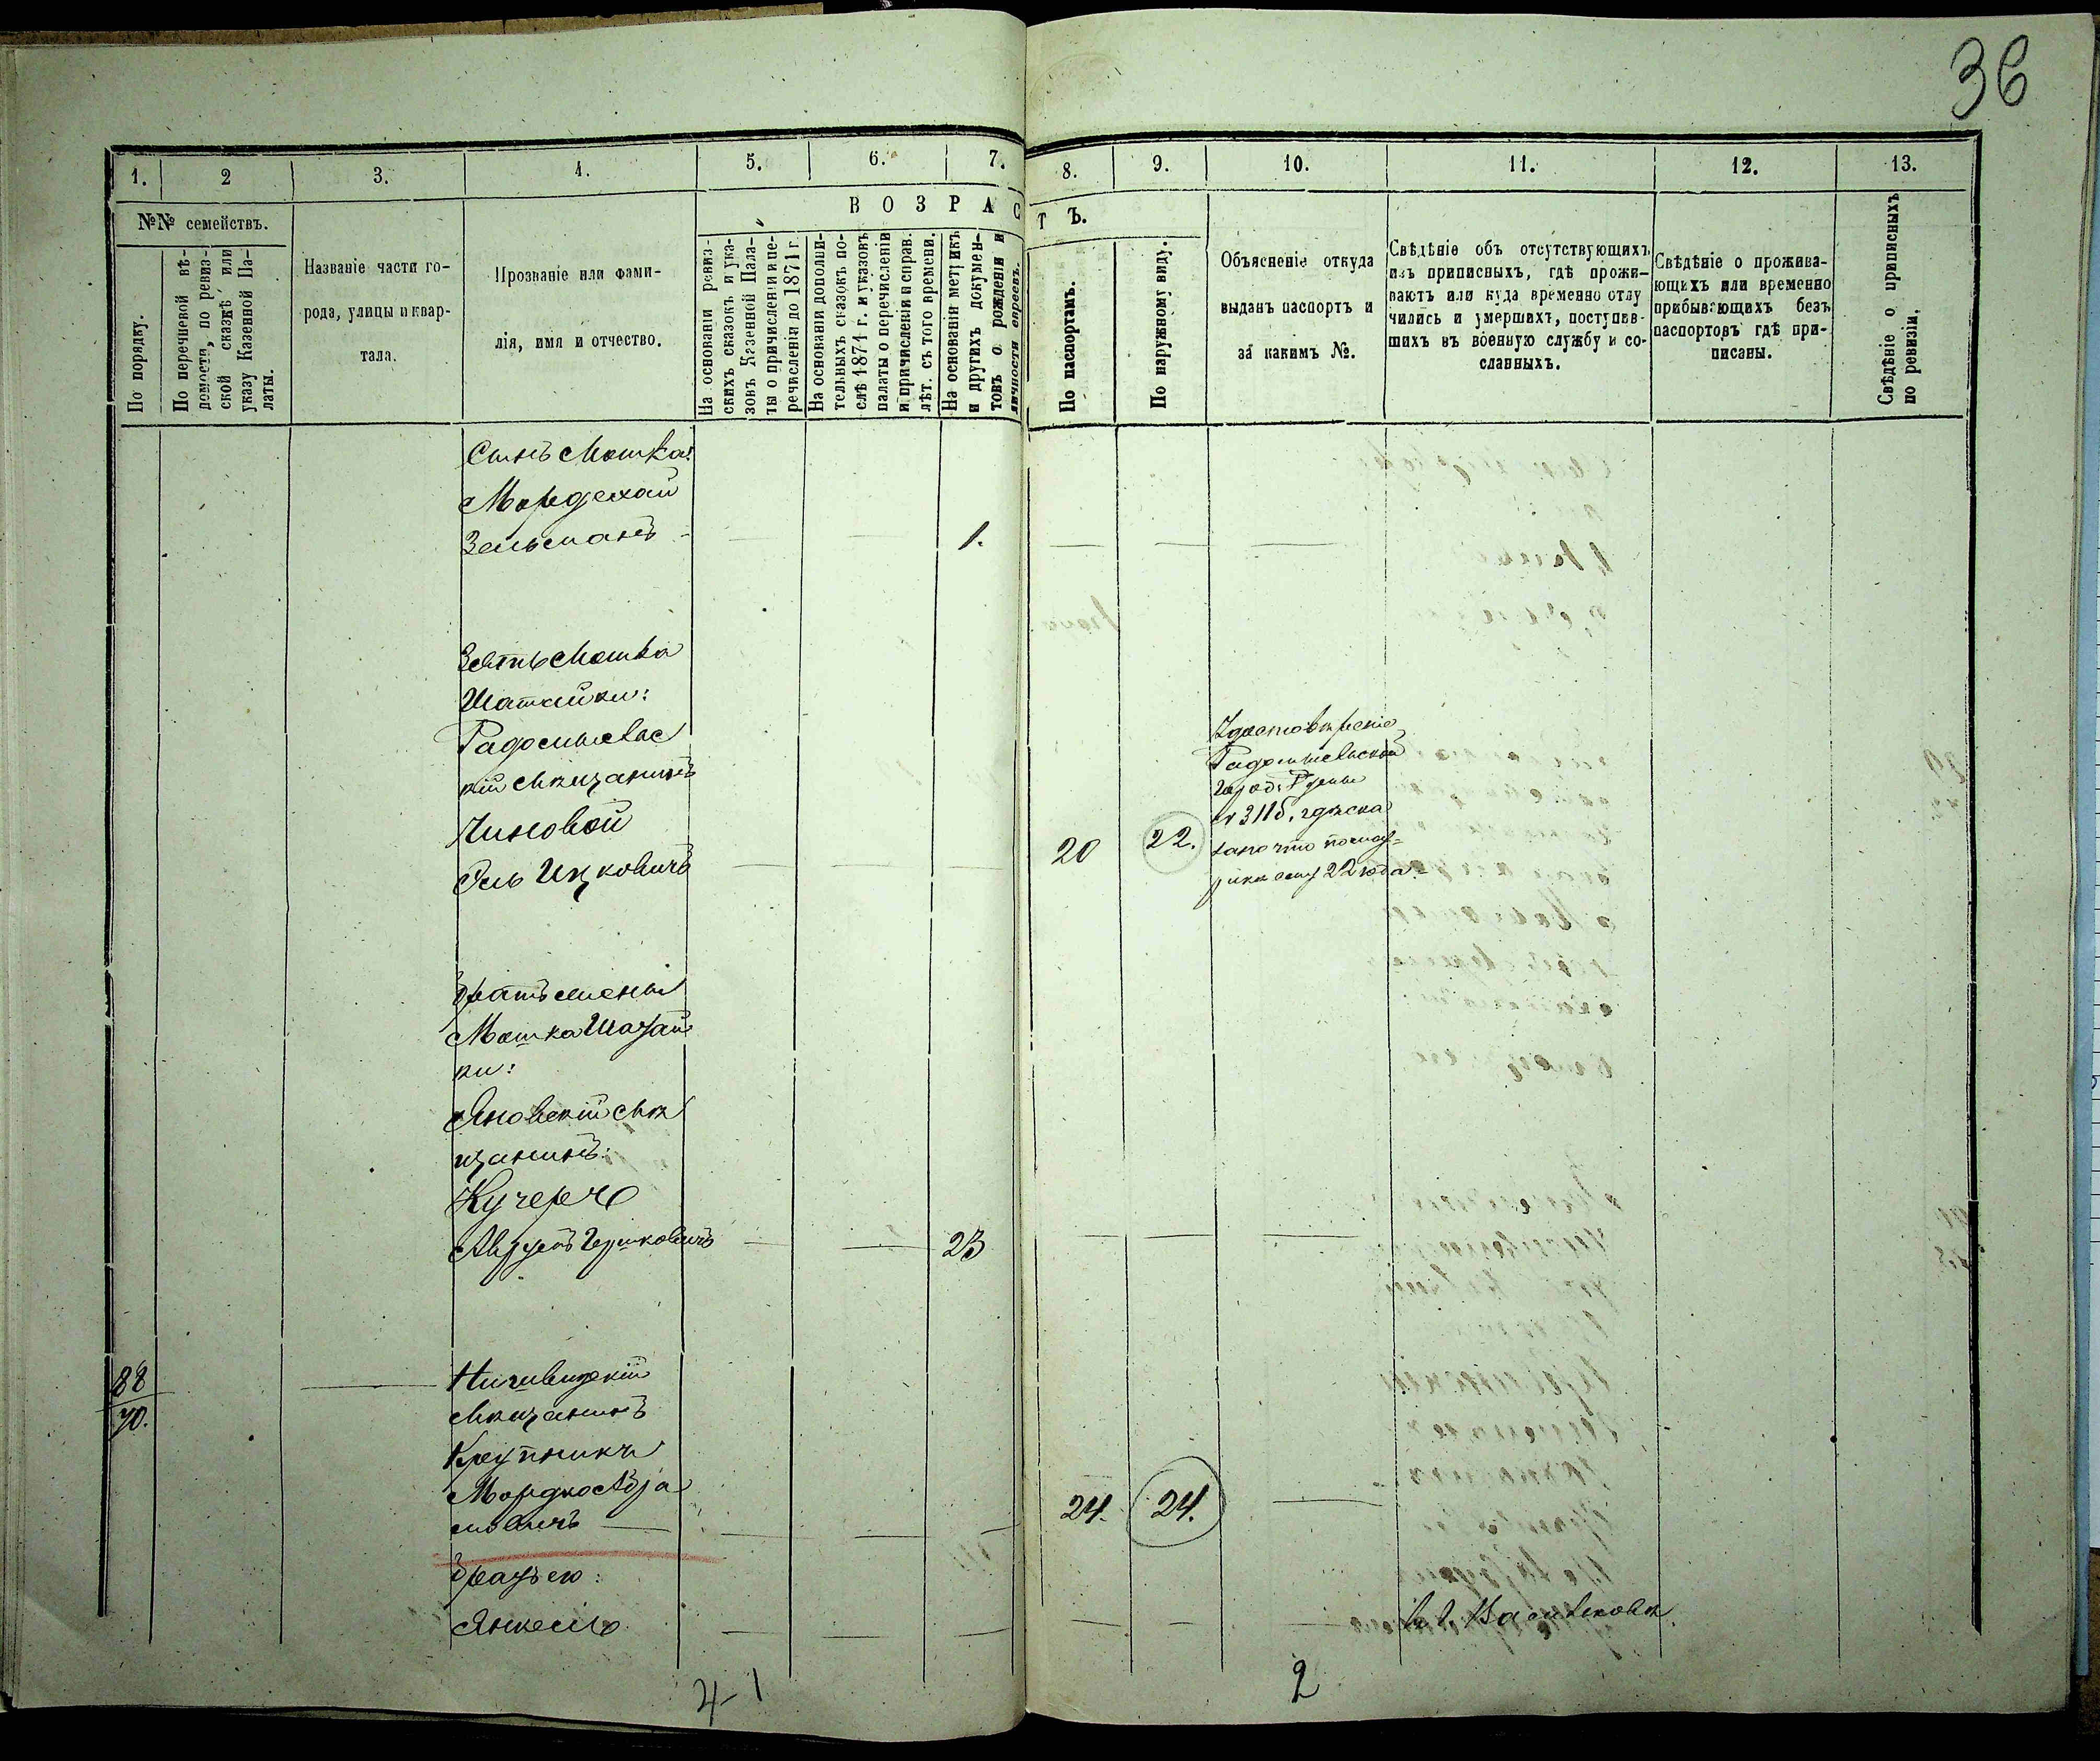 36
1. 2 3. 4. 5. 6. 7. 8. 9. 10. 11. 12. 13.
№№ семействъ.
По порядку.
По перечневой вѣ-
домости, по ревиз-
ской сказкѣ или
указу Казенной Па-
латы.
Названіе части го-
рода, улицы и квар-
тала.
Прозваніе или фами-
лія, имя и отчество.
ВОЗРАСТЪ.
На основаніи ревиз-
скихъ сказокъ и ука-
зовъ Казенной Пала-
ты о причисленіи и пе-
речисленіи до 1871 г.
На основаніи дополни-
тельныхъ сказокъ по-
слѣ 1871 г. и указовъ
палаты о перечисленіи
и причисленіи и справ.
лѣт. съ того времени.
На основаніи метрикъ
и другихъ докумен-
товъ о рожденіи и
личности евреевъ.
По паспортамъ.
По наружному виду.
Объясненіе откуда
выданъ паспортъ и
за какимъ №.
Свѣдѣніе объ отсутствующихъ
изъ приписныхъ, гдѣ прожи-
ваютъ или куда временно отлу
чились и умершихъ, поступив-
шихъ въ военную службу и со-
сланныхъ.
Свѣдѣніе о прожива-
ющихъ или временно
прибывающихъ безъ
паспортовъ гдѣ при-
писаны.
Свѣдѣніе о приписныхъ
по ревизіи.
Сынъ Мошка:
Мордехай
Зельманъ - 1.
Зять Мошка
Шатайки:
Радомысльс
кій мѣщанинъ
Линовой
Ицковичъ 20 22.
Удостовѣреніе
Радомысльской
Город.
№ 3115, гдѣ ска
зано что по
ему 22 года.
Братъ жены
Мошка
ки:
Яновскій мѣ
щанинъ:
Кучеръ
Гершковичъ 23
88
70.
мѣщанинъ
Крупникъ
Мордко Абра
мовичъ 24. 24.
Братъ его:
Янкель В. Васильковѣ
4-1
2